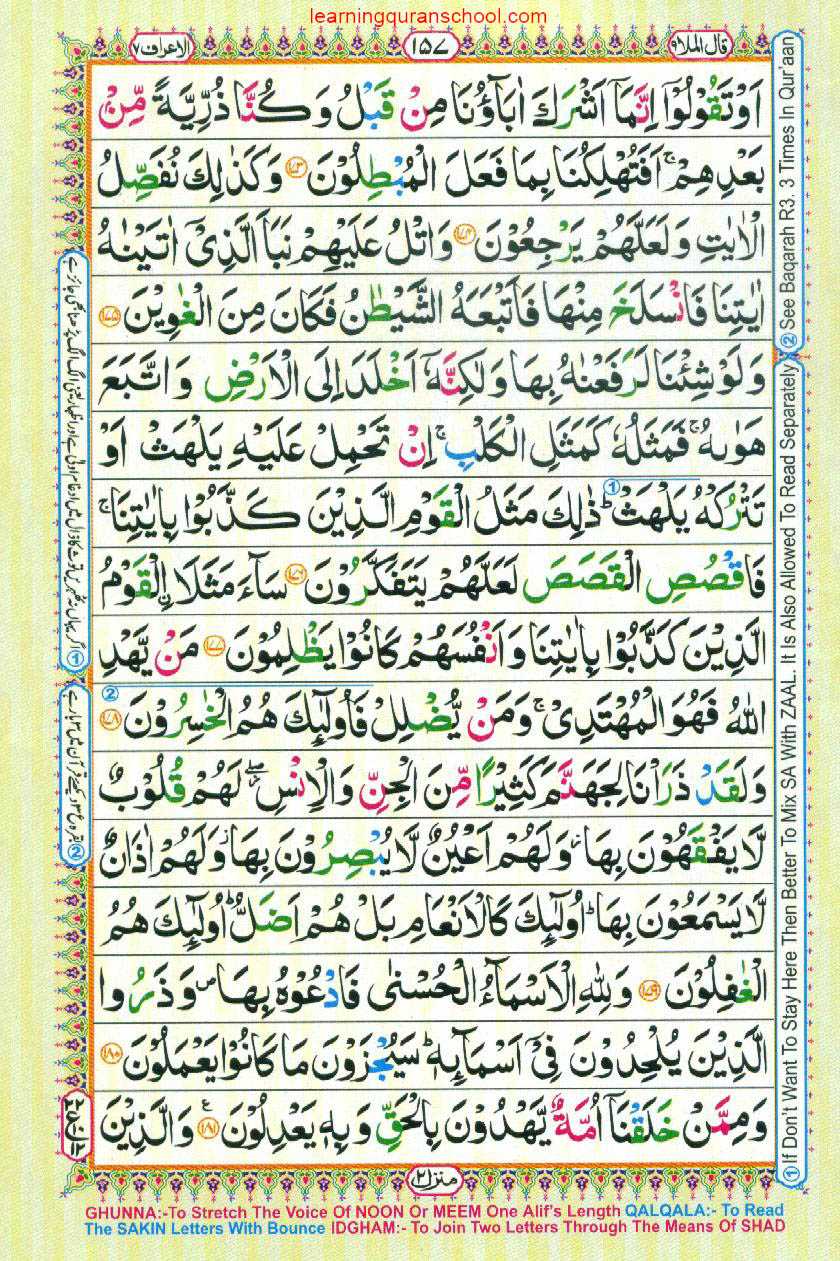 learningquranschool.com
قال الملا ٩
١٥٧
الاعراف ٧
اَوْ تَقُوْلُوْۤا اِنَّمَاۤ اَشْرَكَ اٰبَآؤُنَا مِنْ قَبْلُ وَ كُنَّا ذُرِّیَّةً مِّنْۢ
بَعْدِهِمْ ۚ اَفَتُهْلِكُنَا بِمَا فَعَلَ الْمُبْطِلُوْنَ ﴿۱۷۳﴾ وَ كَذٰلِكَ نُفَصِّلُ
الْاٰیٰتِ وَ لَعَلَّهُمْ یَرْجِعُوْنَ ﴿۱۷۴﴾ وَ اتْلُ عَلَیْهِمْ نَبَاَ الَّذِیْۤ اٰتَیْنٰهُ
اٰیٰتِنَا فَانْسَلَخَ مِنْهَا فَاَتْبَعَهُ الشَّیْطٰنُ فَكَانَ مِنَ الْغٰوِیْنَ ﴿۱۷۵﴾
وَ لَوْ شِئْنَا لَرَفَعْنٰهُ بِهَا وَ لٰكِنَّهٗۤ اَخْلَدَ اِلَی الْاَرْضِ وَ اتَّبَعَ
هَوٰىهُ ۚ فَمَثَلُهٗ كَمَثَلِ الْكَلْبِ ۚ اِنْ تَحْمِلْ عَلَیْهِ یَلْهَثْ اَوْ
تَتْرُكْهُ یَلْهَثْ ؕ① ذٰلِكَ مَثَلُ الْقَوْمِ الَّذِیْنَ كَذَّبُوْا بِاٰیٰتِنَا ۚ
فَاقْصُصِ الْقَصَصَ لَعَلَّهُمْ یَتَفَكَّرُوْنَ ﴿۱۷۶﴾ سَآءَ مَثَلَا ۟الْقَوْمُ
الَّذِیْنَ كَذَّبُوْا بِاٰیٰتِنَا وَ اَنْفُسَهُمْ كَانُوْا یَظْلِمُوْنَ ﴿۱۷۷﴾ مَنْ یَّهْدِ
اللّٰهُ فَهُوَ الْمُهْتَدِیْ ۚ وَ مَنْ یُّضْلِلْ فَاُولٰٓىِٕكَ هُمُ الْخٰسِرُوْنَ ② ﴿۱۷۸﴾
وَ لَقَدْ ذَرَاْنَا لِجَهَنَّمَ كَثِیْرًا مِّنَ الْجِنِّ وَ الْاِنْسِ ۖؗ لَهُمْ قُلُوْبٌ
لَّا یَفْقَهُوْنَ بِهَا ؗ وَ لَهُمْ اَعْیُنٌ لَّا یُبْصِرُوْنَ بِهَا ؗ وَ لَهُمْ اٰذَانٌ
لَّا یَسْمَعُوْنَ بِهَا ؕ اُولٰٓىِٕكَ كَالْاَنْعَامِ بَلْ هُمْ اَضَلُّ ؕ اُولٰٓىِٕكَ هُمُ
الْغٰفِلُوْنَ ﴿۱۷۹﴾ وَ لِلّٰهِ الْاَسْمَآءُ الْحُسْنٰی فَادْعُوْهُ بِهَا ۪ وَ ذَرُوا
الَّذِیْنَ یُلْحِدُوْنَ فِیْۤ اَسْمَآىِٕهٖ ؕ سَیُجْزَوْنَ مَا كَانُوْا یَعْمَلُوْنَ ﴿۱۸۰﴾
وَ مِمَّنْ خَلَقْنَاۤ اُمَّةٌ یَّهْدُوْنَ بِالْحَقِّ وَ بِهٖ یَعْدِلُوْنَ ﴿۱۸۱﴾ وَ الَّذِیْنَ
منزل ٢
② See Baqarah R3. 3 Times In Qur'aan
① If Don't Want To Stay Here Then Better To Mix SA With ZAAL. It Is Also Allowed To Read Separately
GHUNNA:-To Stretch The Voice Of NOON Or MEEM One Alif's Length QALQALA:- To Read
The SAKIN Letters With Bounce IDGHAM:- To Join Two Letters Through The Means Of SHAD